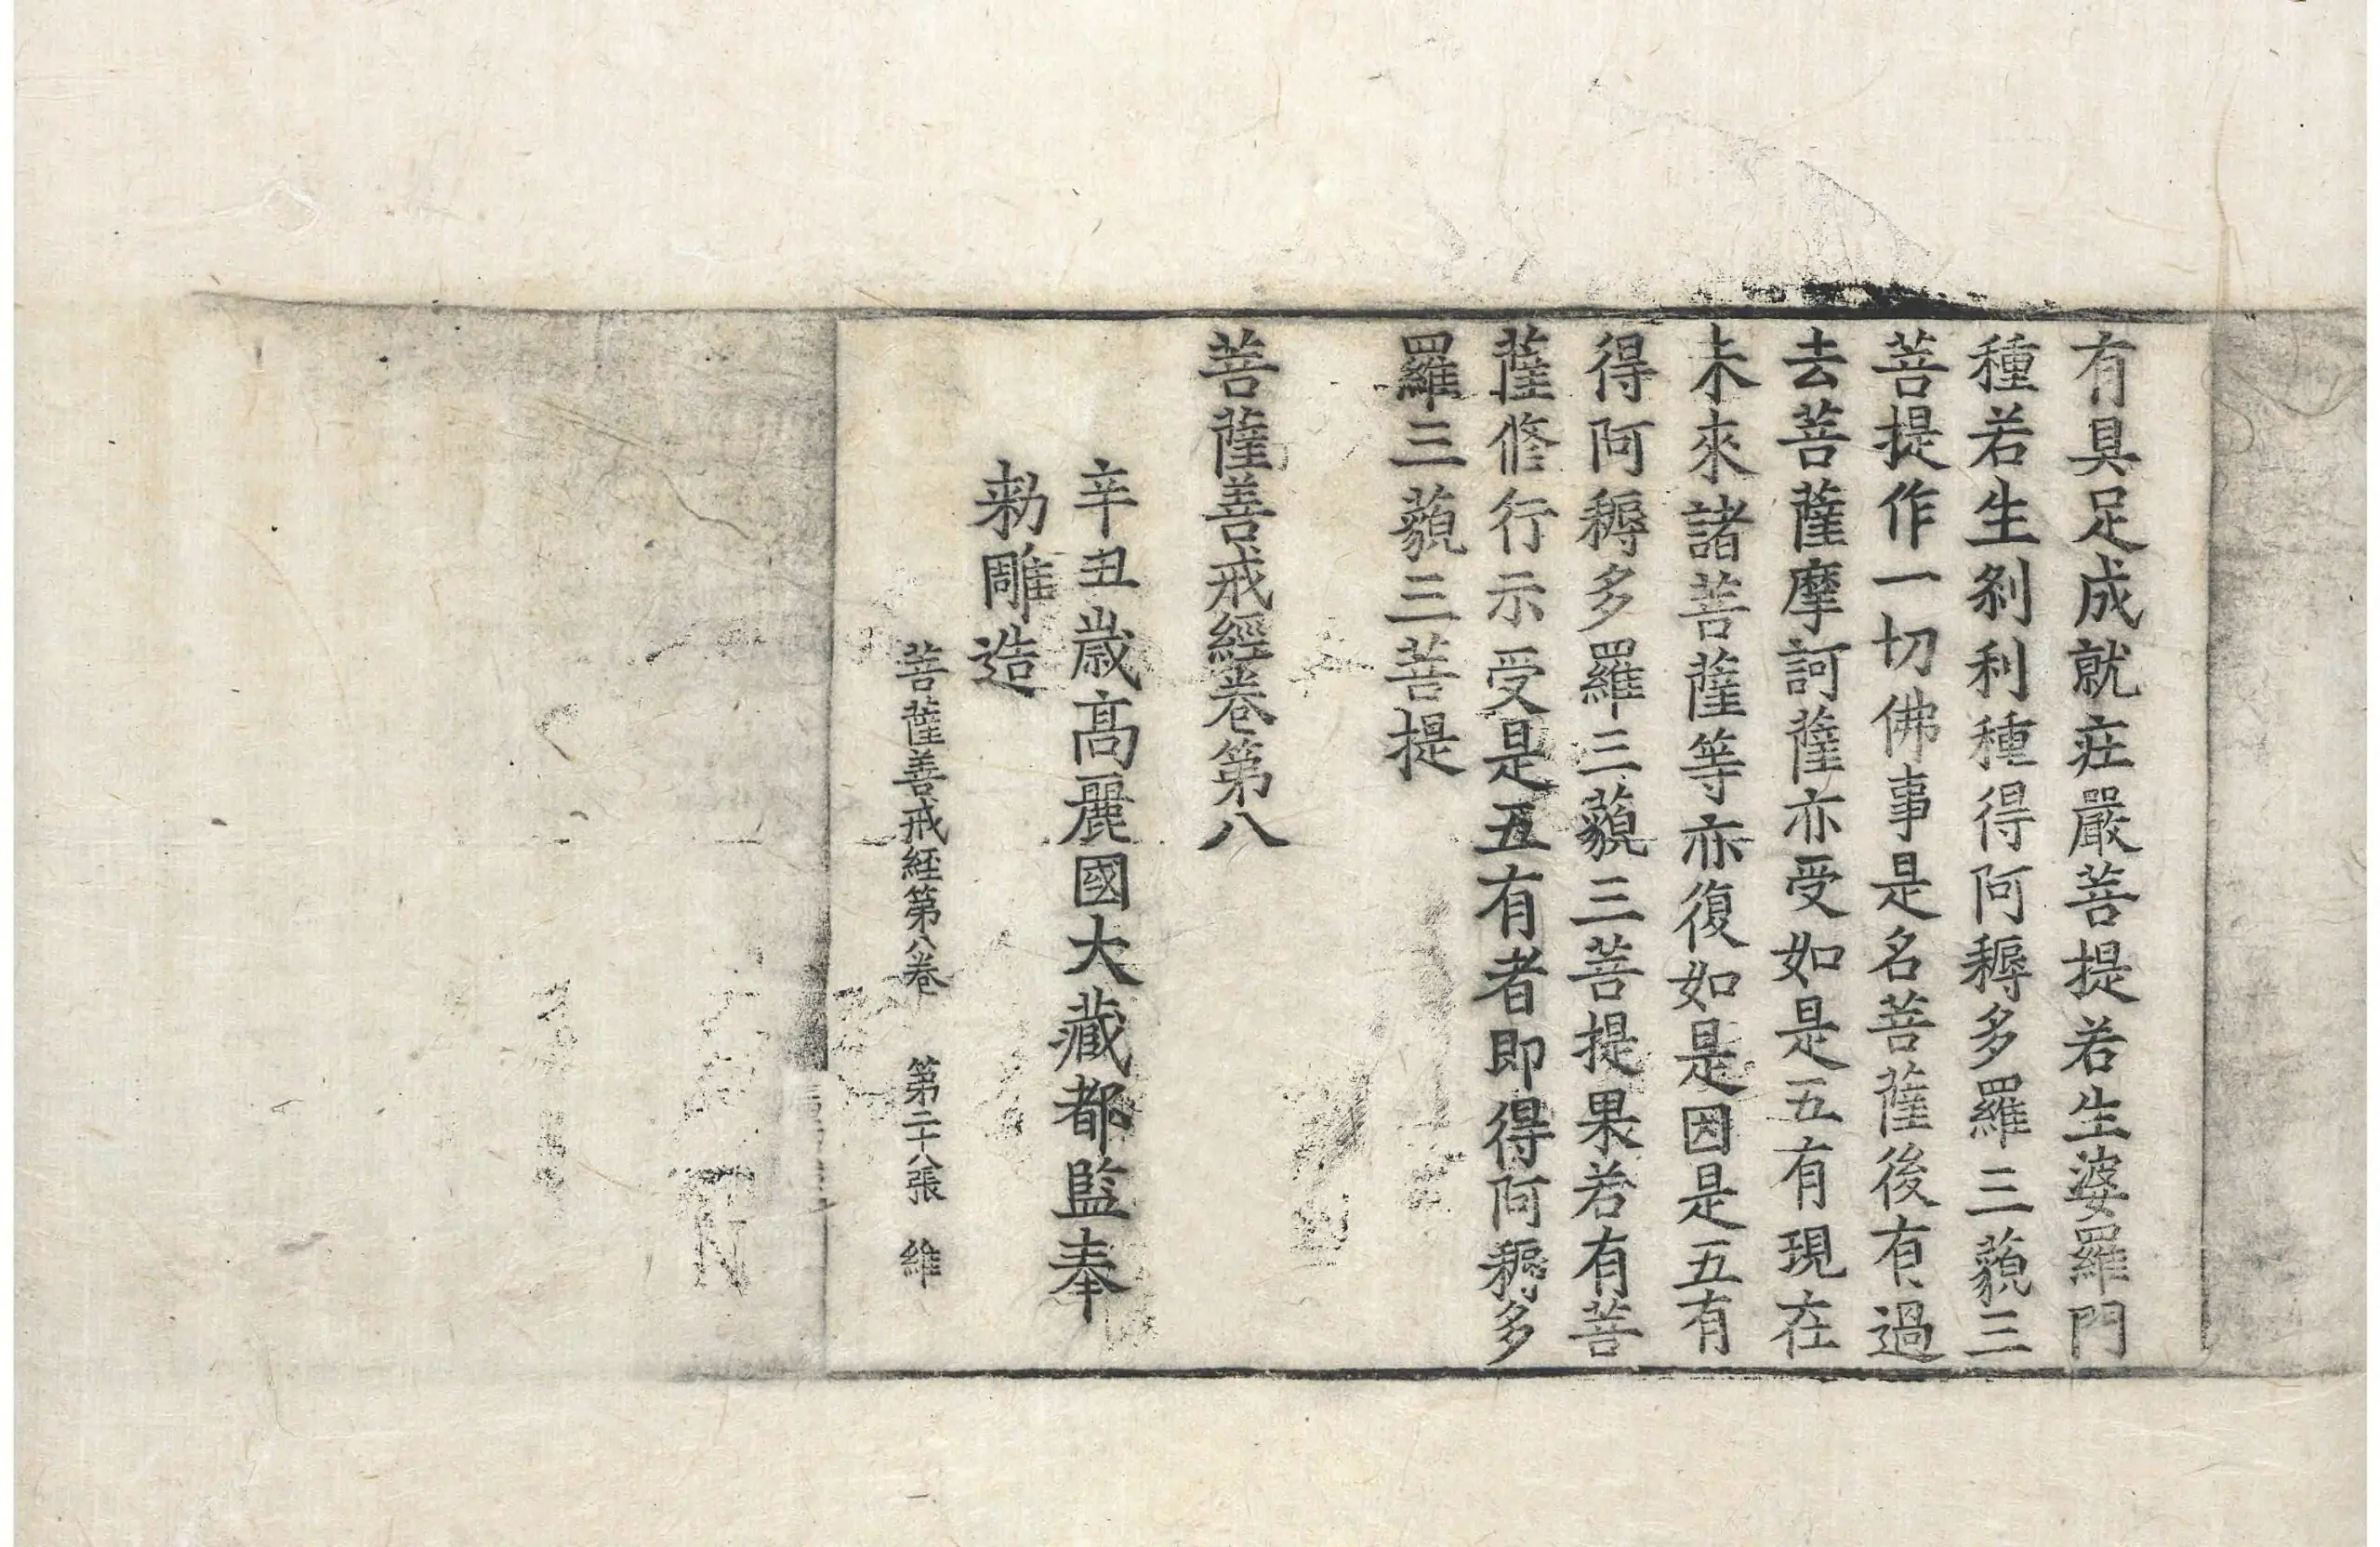 有具足成就莊嚴菩提若生婆羅門
種若生剎利種得阿耨多羅三藐三
菩提作一切佛事是名菩薩後有過
去菩薩摩訶薩亦受如是五有現在
未來諸菩薩等亦復如是因是五有
得阿耨多羅三藐三菩提果若有菩
薩修行示受是五有者即得阿耨多
羅三藐三菩提
菩薩善戒經卷第八
辛丑歲高麗國大藏都監奉
勅雕造
菩薩善戒經第八卷 第二十八張 維